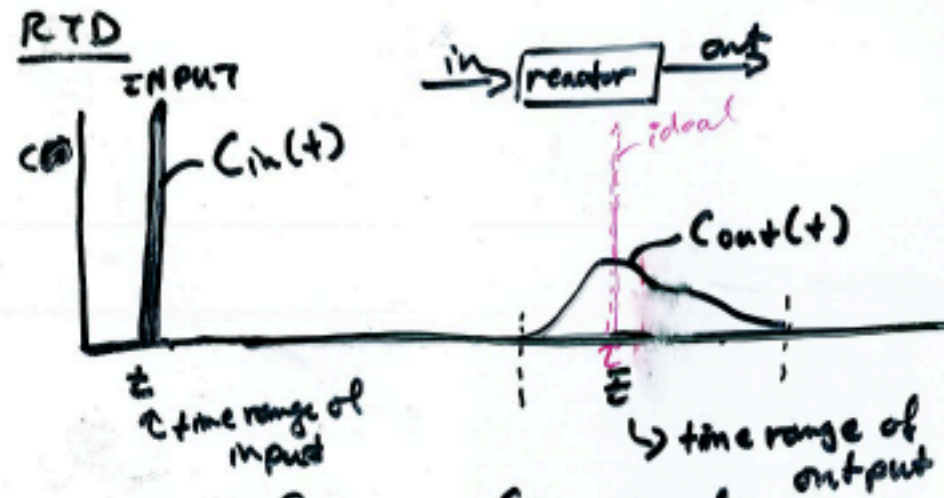 RTD
INPUT
in reactor out
ideal
C
Cin(t)
Cout(t)
τ
t
t̄
time range of
input
time range of
output